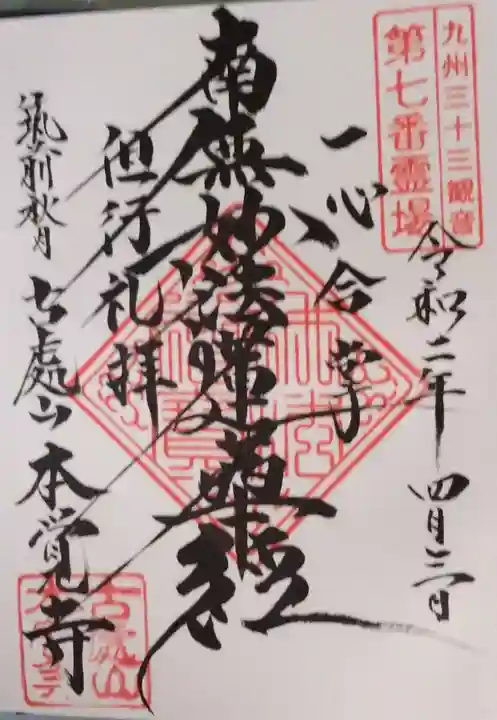 九州三十三観音
第七番霊場
令和二年 四月三日
一心合掌
南無妙法蓮華経
但行礼拝
筑前秋月 古處山 本覚寺